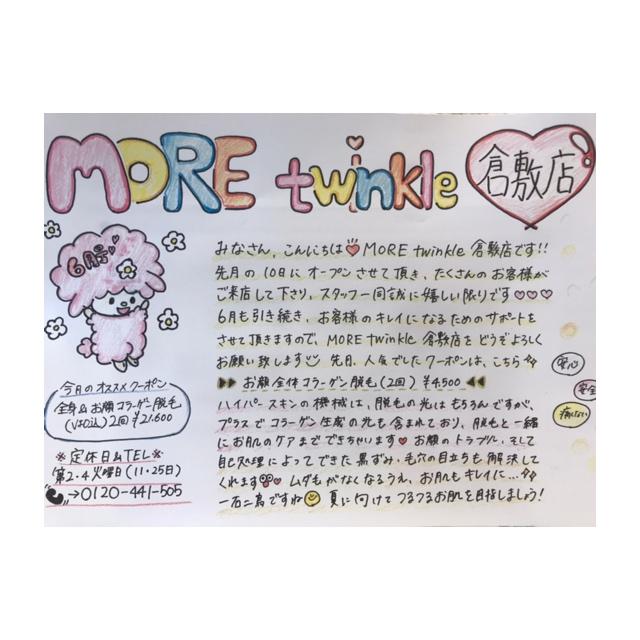 MORE twinkle 倉敷店
6月号
みなさん、こんにちは♥MORE twinkle 倉敷店です!!
先月の10日にオープンさせて頂き、たくさんのお客様が
ご来店して下り、スタッフ一同誠に嬉しい限りです♡♡♡
6月も引き続き、お客様のキレイになるためのサポートを
させて頂きますので、MORE twinkle 倉敷店をどうぞよろしく
お願い致します 先日、人気でしたクーポンは、こちら
▶▶ お顔全体コラーゲン脱毛(2回) ¥4,500 ◀◀
ハイパースキンの機械は、脱毛の光はもちろんですが、
プラスでコラーゲン生成の光も含まれており、脱毛と一緒
にお肌のケアまでできちゃいます♡ お顔のトラブル、そして
自己処理によってできた黒ずみ、毛穴の目立ちも解決して
くれます♥ ムダ毛がなくなるうえ、お肌もキレイに…
一石二鳥ですね 夏に向けてつるつるお肌を目指しましょう!
安心
安全
痛くない
今月のオススメクーポン
全身&お顔コラーゲン脱毛
(VIO込)2回 ¥21,600
※定休日&TEL※
第2・4火曜日(11・25日)
→0120-441-505